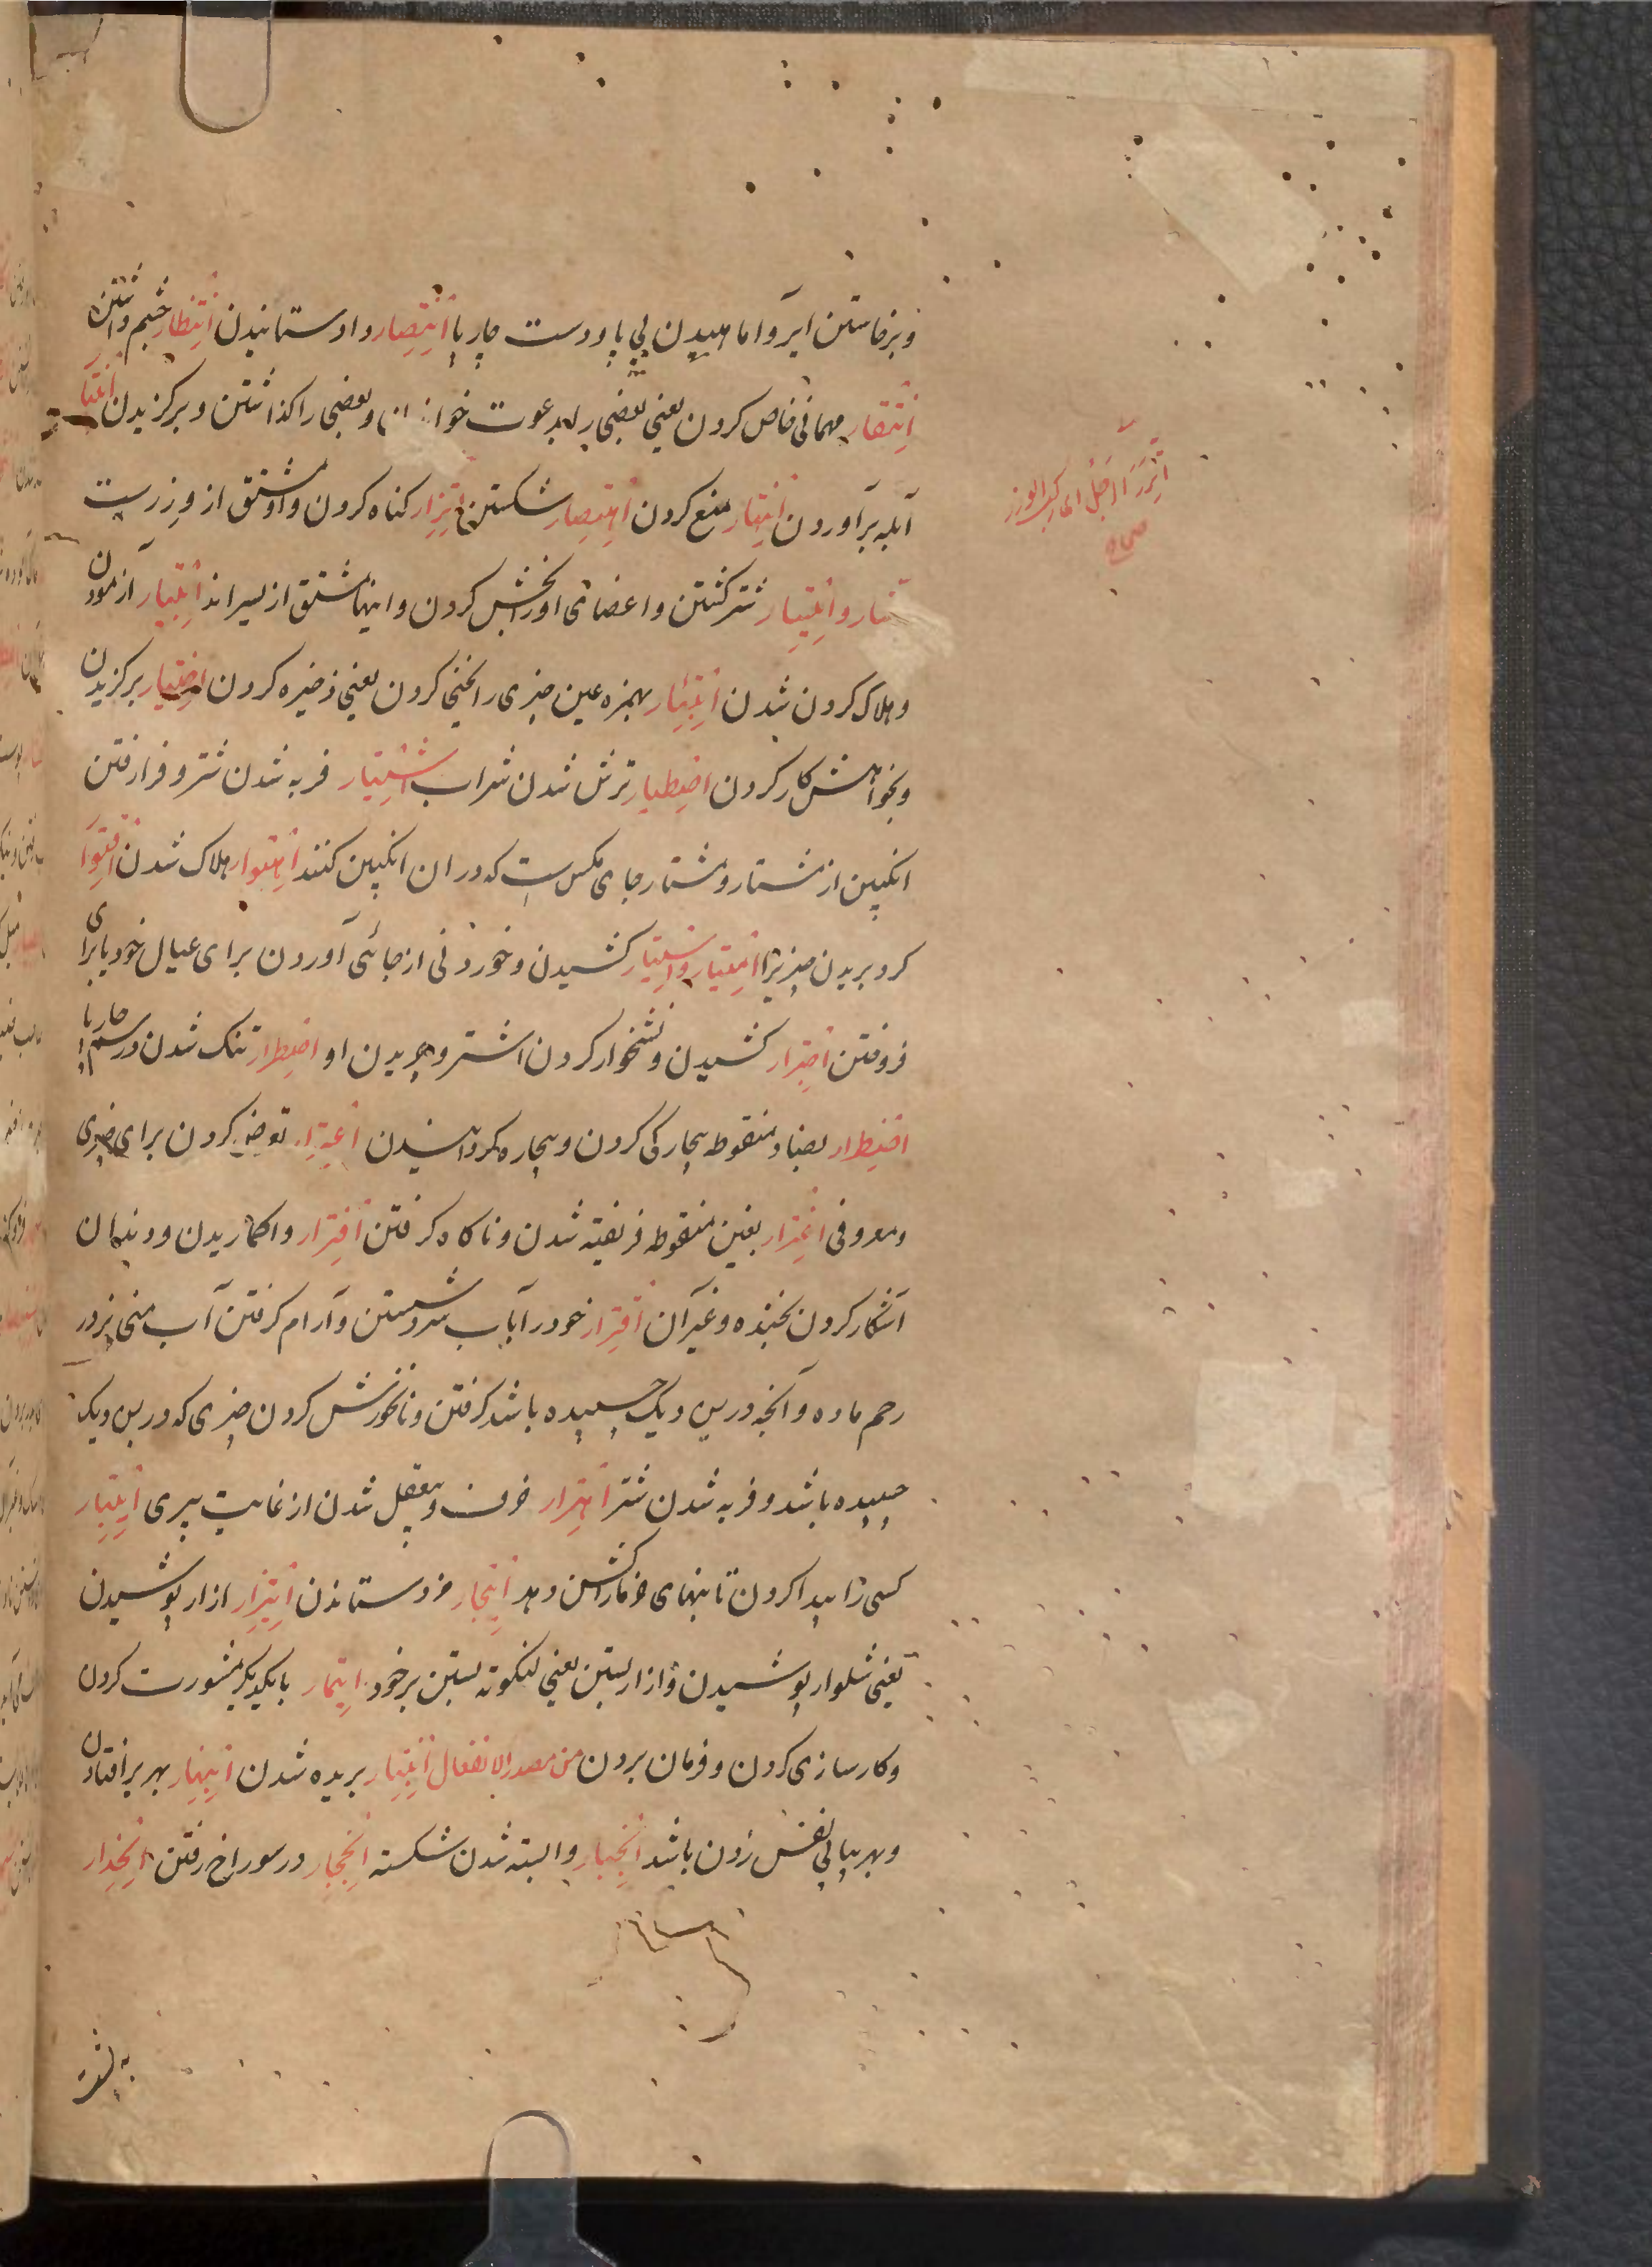 و برخاستن ایر و اماهیدن پی پا و دست چارپا انتصار داد ستانیدن انتظار چشم داشتن
انتقار مهمانی خاص کردن یعنی بعضی را بدعوت خواندن و بعضی را کذاشتن و برکزیدن
آبله برآوردن منع کردن اهتصار شکستن اتزار کناه کردن و او مشتق از وزرست
و ایتسار شتر کشتن و اعضای او را بخش کردن و اینها مشتق از یسراند ابتیار آزمودن
و هلاک کردن شدن ابتئار بهمزه عین چیزی را یخنی کردن یعنی ذخیره کردن اختیار برکزیدن
و بخواهش کار کردن اضطیار ترش شدن شراب اشتیار فربه شدن شتر و فرا رفتن
انکبین از مشتار و مشتار جای مکس است که در ان انکبین کنند اهتوار هلاک شدن اقتوا
کرد بریدن چیزی را امتیار و استیار کشیدن و خوردنی از جائی آوردن برای عیال خود یا برای
فروختن اجترار کشیدن و نشخوار کردن اشتر و چریدن او اضطرار تنک شدن در سم چارپا
اضطرار بضاد منقوطه بیچارکی کردن و بیچاره کردانیدن اعترار تعرض کردن برای چیزی
و معروفی اغترار بغین منقوطه فریفته شدن و ناکاه کرفتن افترار و اکماریدن و دندان
آشکار کردن بخنده و غیر آن اقترار خود را بآب سرد شستن و آرام کرفتن آب منی نر در
رحم ماده و آنچه در پس دیک چسپیده باشد کرفتن و نانخورش کردن چیزی که در پس دیک
چسپیده باشد و فربه شدن شتر اهترار خرف و بیعقل شدن از غایت پیری ایتبار
کسی را پیدا کردن تا بنهای خرما را کشن دهد ایتجار مزد ستاندن ایتزار ازار پوشیدن
یعنی شلوار پوشیدن و ازار بستن یعنی لنکوته بستن بر خود ایتمار با یکدیکر مشورت کردن
و کارسازی کردن و فرمان بردن من مصدر الانفعال انبتار بریده شدن انبهار بهر بر افتادن
و بهر پیاپی نفس زدن باشد انجبار وا بسته شدن شکسته انجحار در سوراخ رفتن انحدار